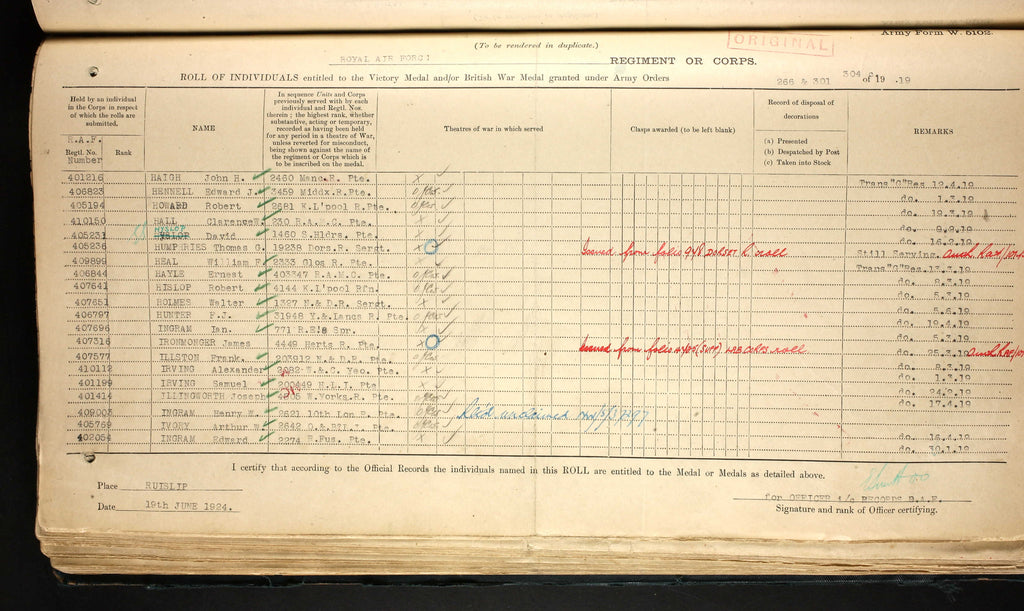 Army Form W. 5102.
(To be rendered in duplicate.)
ORIGINAL
ROYAL AIR FORCE REGIMENT OR CORPS.
ROLL OF INDIVIDUALS entitled to the Victory Medal and/or British War Medal granted under Army Orders 266 & 301 304 of 19 .19
Held by an individual in the Corps in respect of which the rolls are submitted.
R.A.F.
Regtl. No. Rank
Number
NAME
In sequence Units and Corps previously served with by each individual and Regtl. Nos. therein; the highest rank, whether substantive, acting or temporary, recorded as having been held for any period in a theatre of War, unless reverted for misconduct, being shown against the name of the regiment or Corps which is to be inscribed on the medal.
Theatres of war in which served
Clasps awarded (to be left blank)
Record of disposal of decorations
(a) Presented
(b) Despatched by Post
(c) Taken into Stock
REMARKS
401216 HAIGH John H. 2460 Manc.R. Pte. X Trans"G"Res 12.4.19
406823 HENNELL Edward J. 3459 Middx.R.Pte. do. 1.3.19
405194 HOWARD Robert 2681 K.L'pool R.Pte. do. 19.3.19
410150 HALL Clarence W. 230 R.A.M.C. Pte. X do.
405231 HYSLOP David 1460 S.Hldrs. Pte. X do. 16.2.19
405236 HUMPHRIES Thomas G. 19238 Dors.R. Sergt. X Issued from folio 948 Dorset R. roll Still Serving.
409899 HEAL William F. 2333 Glos R. Pte. X Trans"G"Res.
406844 HAYLE Ernest 403347 R.A.M.C. Pte. do.
407641 HISLOP Robert 4144 K.L'pool Rfn. do. 5.3.19
407651 HOLMES Walter 1327 N.& D.R. Sergt. X do.
406797 HUNTER F.J. 31948 Y.& Lancs R. Pte. do. 5.6.19
407696 INGRAM Ian. 771 R.E's Spr. X do. 19.4.19
407316 IRONMONGER James 4449 Herts R. Pte. X Issued from folio roll do. 5.3.19
407577 ILLSTON Frank. 203912 N.& D.R. Pte. do. 25.3.19
410112 IRVING Alexander 2682 W.& C. Yeo. Pte. X do.
401199 IRVING Samuel 200449 H.L.I. Pte X do. 1.3.19
401414 ILLINGWORTH Joseph W.Yorks.R. Pte. do.
409003 INGRAM Henry W. 2621 10th.Lon R. Pte. do. 17.4.19
405769 IVORY Arthur W. 2642 Pte.
402054 INGRAM Edward 2274 R.Fus. Pte. X do. 16.4.19
do. 30.1.19
I certify that according to the Official Records the individuals named in this ROLL are entitled to the Medal or Medals as detailed above.
Place RUISLIP
Date 19th JUNE 1924.
for OFFICER i/c RECORDS R.A.F.
Signature and rank of Officer certifying.